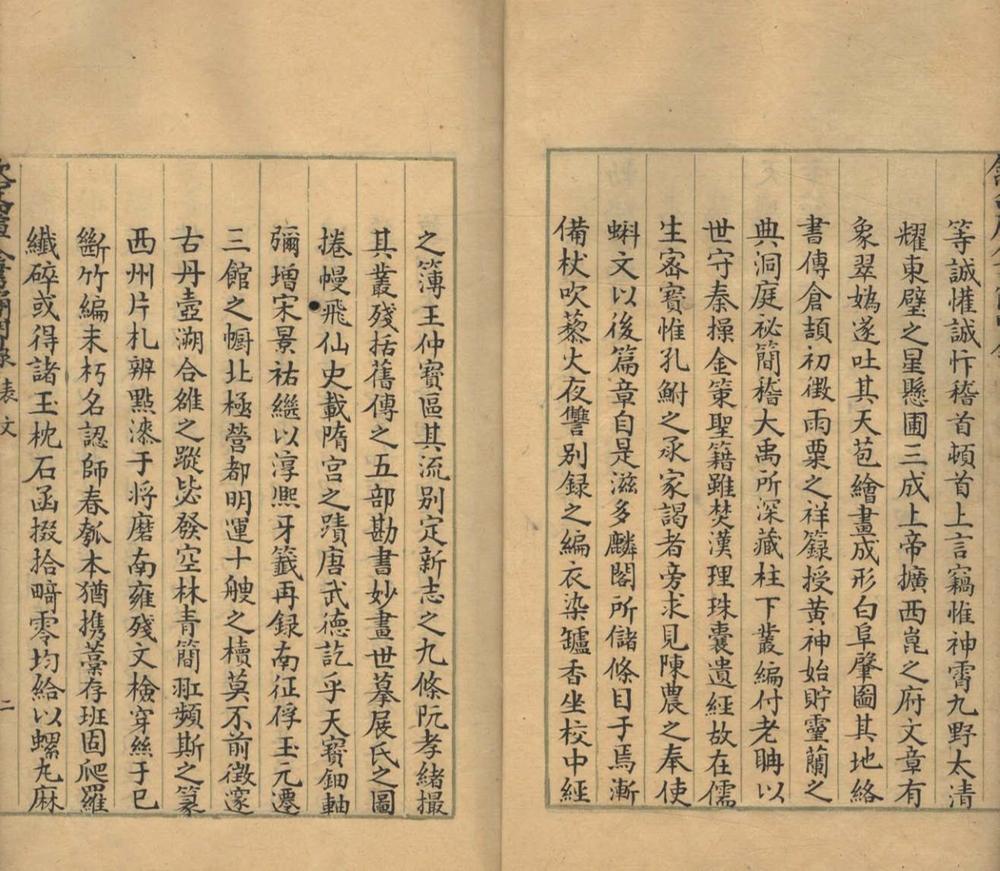 等誠懽誠忭稽首頓首上言竊惟神霄九野太清
耀東璧之星懸圃三成上帝擴西崑之府文章有
象翠嬀遂吐其天苞繪畫成形白阜肇圖其地絡
書傳倉頡初徵雨粟之祥籙授黃神始貯靈蘭之
典洞庭祕簡稽大禹所深藏柱下叢編付老聃以
世守秦操金策聖籍雖焚漢理珠囊遺經故在儒
生宻寶惟孔鮒之承家謁者旁求見陳農之奉使
蝌文以後篇章自是滋多麟閣所儲條目于焉漸
備杖吹藜火夜讐別録之編衣染罏香坐校中經
之簿王仲寶區其流別定新志之九條阮孝緒撮
其叢殘括舊傳之五部勘書妙畫世摹展氏之圖
捲幔飛仙史載隋宮之蹟唐武徳訖乎天寶鈿軸
彌增宋景祐繼以淳熙牙籤再録南征俘玉元遷
三館之幮北極營都明運十艘之櫝莫不前徵邃
古丹壺溯合雒之蹤毖發空林青簡㧁頻斯之篆
西州片札辨點漆于將磨南雍殘文檢穿絲于已
斷竹編未朽名認師春瓠本猶攜藁存班固爬羅
纖碎或得諸玉枕石函掇拾畸零均給以螺丸麻
表文
二